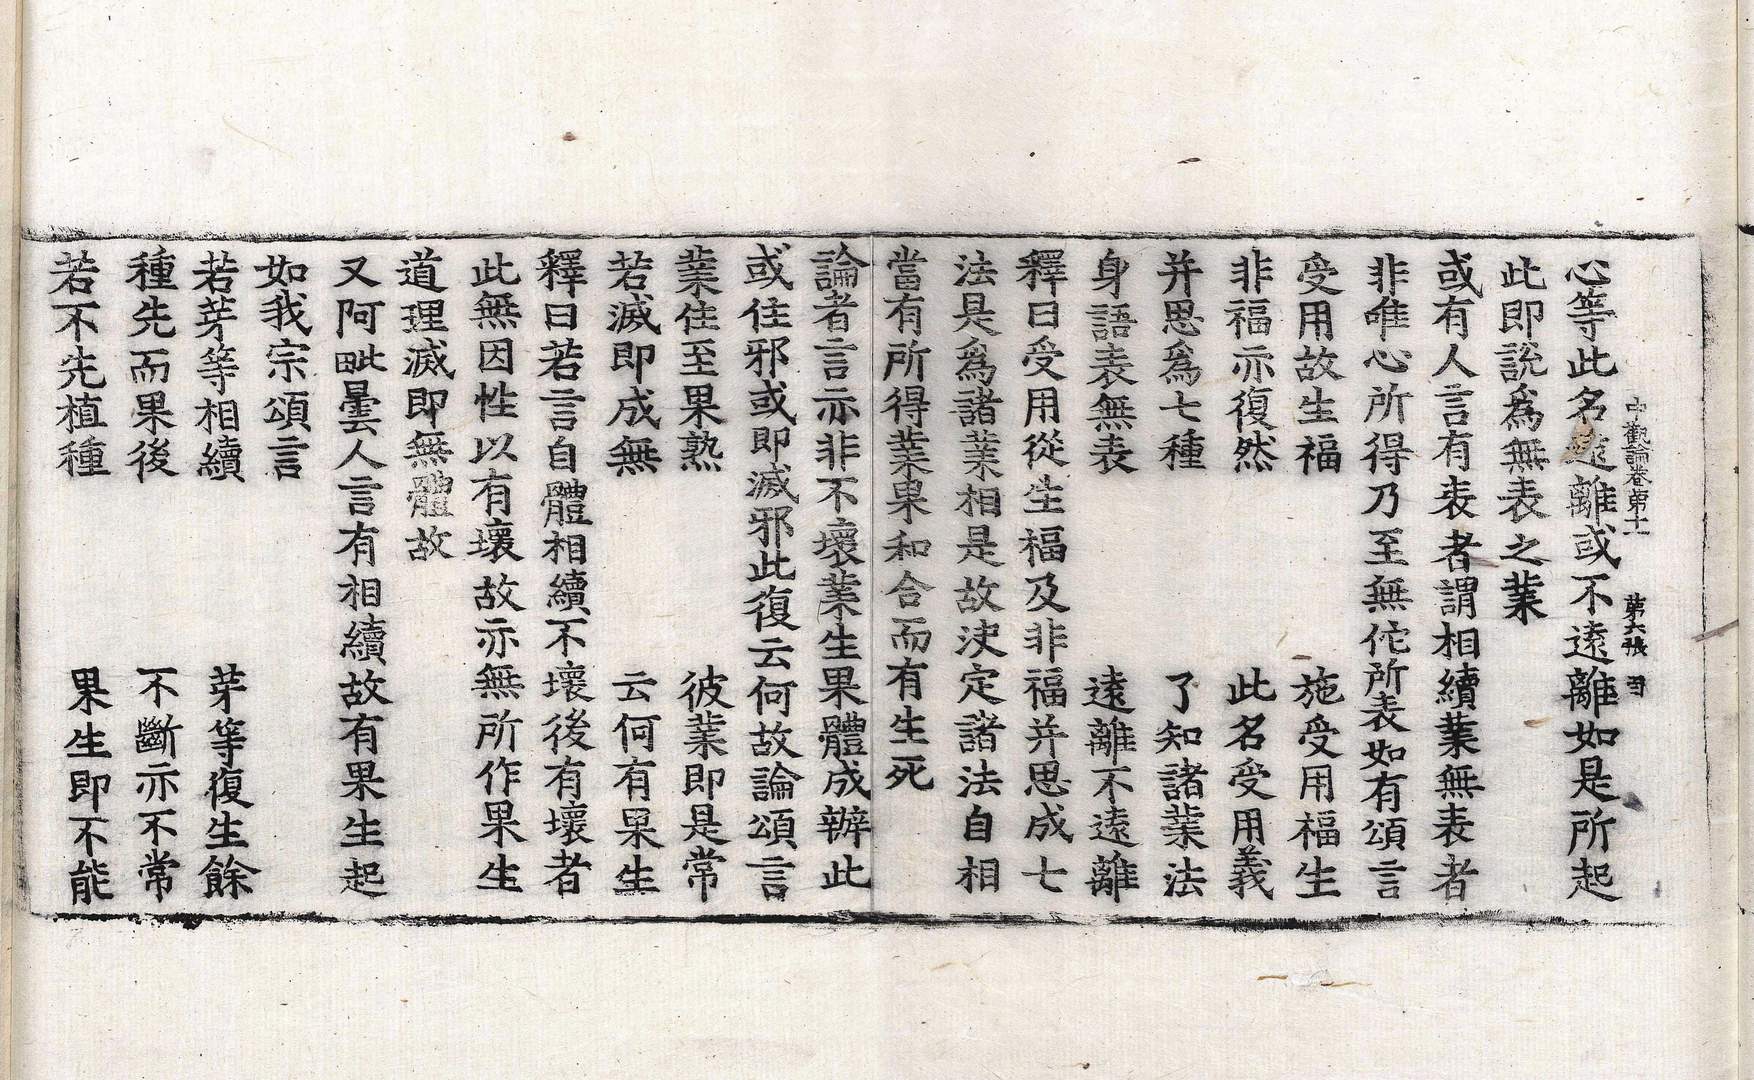 中觀論卷第十一 第六張 𠕋
心等此名遠離或不遠離如是所起
此即說為無表之業
或有人言有表者謂相續業無表者
非唯心所得乃至無佗所表如有頌言
受用故生福 施受用福生
非福亦復然 此名受用義
并思為七種 了知諸業法
身語表無表 遠離不遠離
釋曰受用從生福及非福并思成七
法是為諸業相是故决定諸法自相
當有所得業果和合而有生死
論者言亦非不壞業生果體成辦此
或住邪或即滅邪此復云何故論頌言
業住至果熟 彼業即是常
若滅即成無 云何有果生
釋曰若言自體相續不壞後有壞者
此無因性以有壞故亦無所作果生
道理滅即無體故
又阿毗曇人言有相續故有果生起
如我宗頌言
若芽等相續 芽等復生餘
種先而果後 不斷亦不常
若不先植種 果生即不能